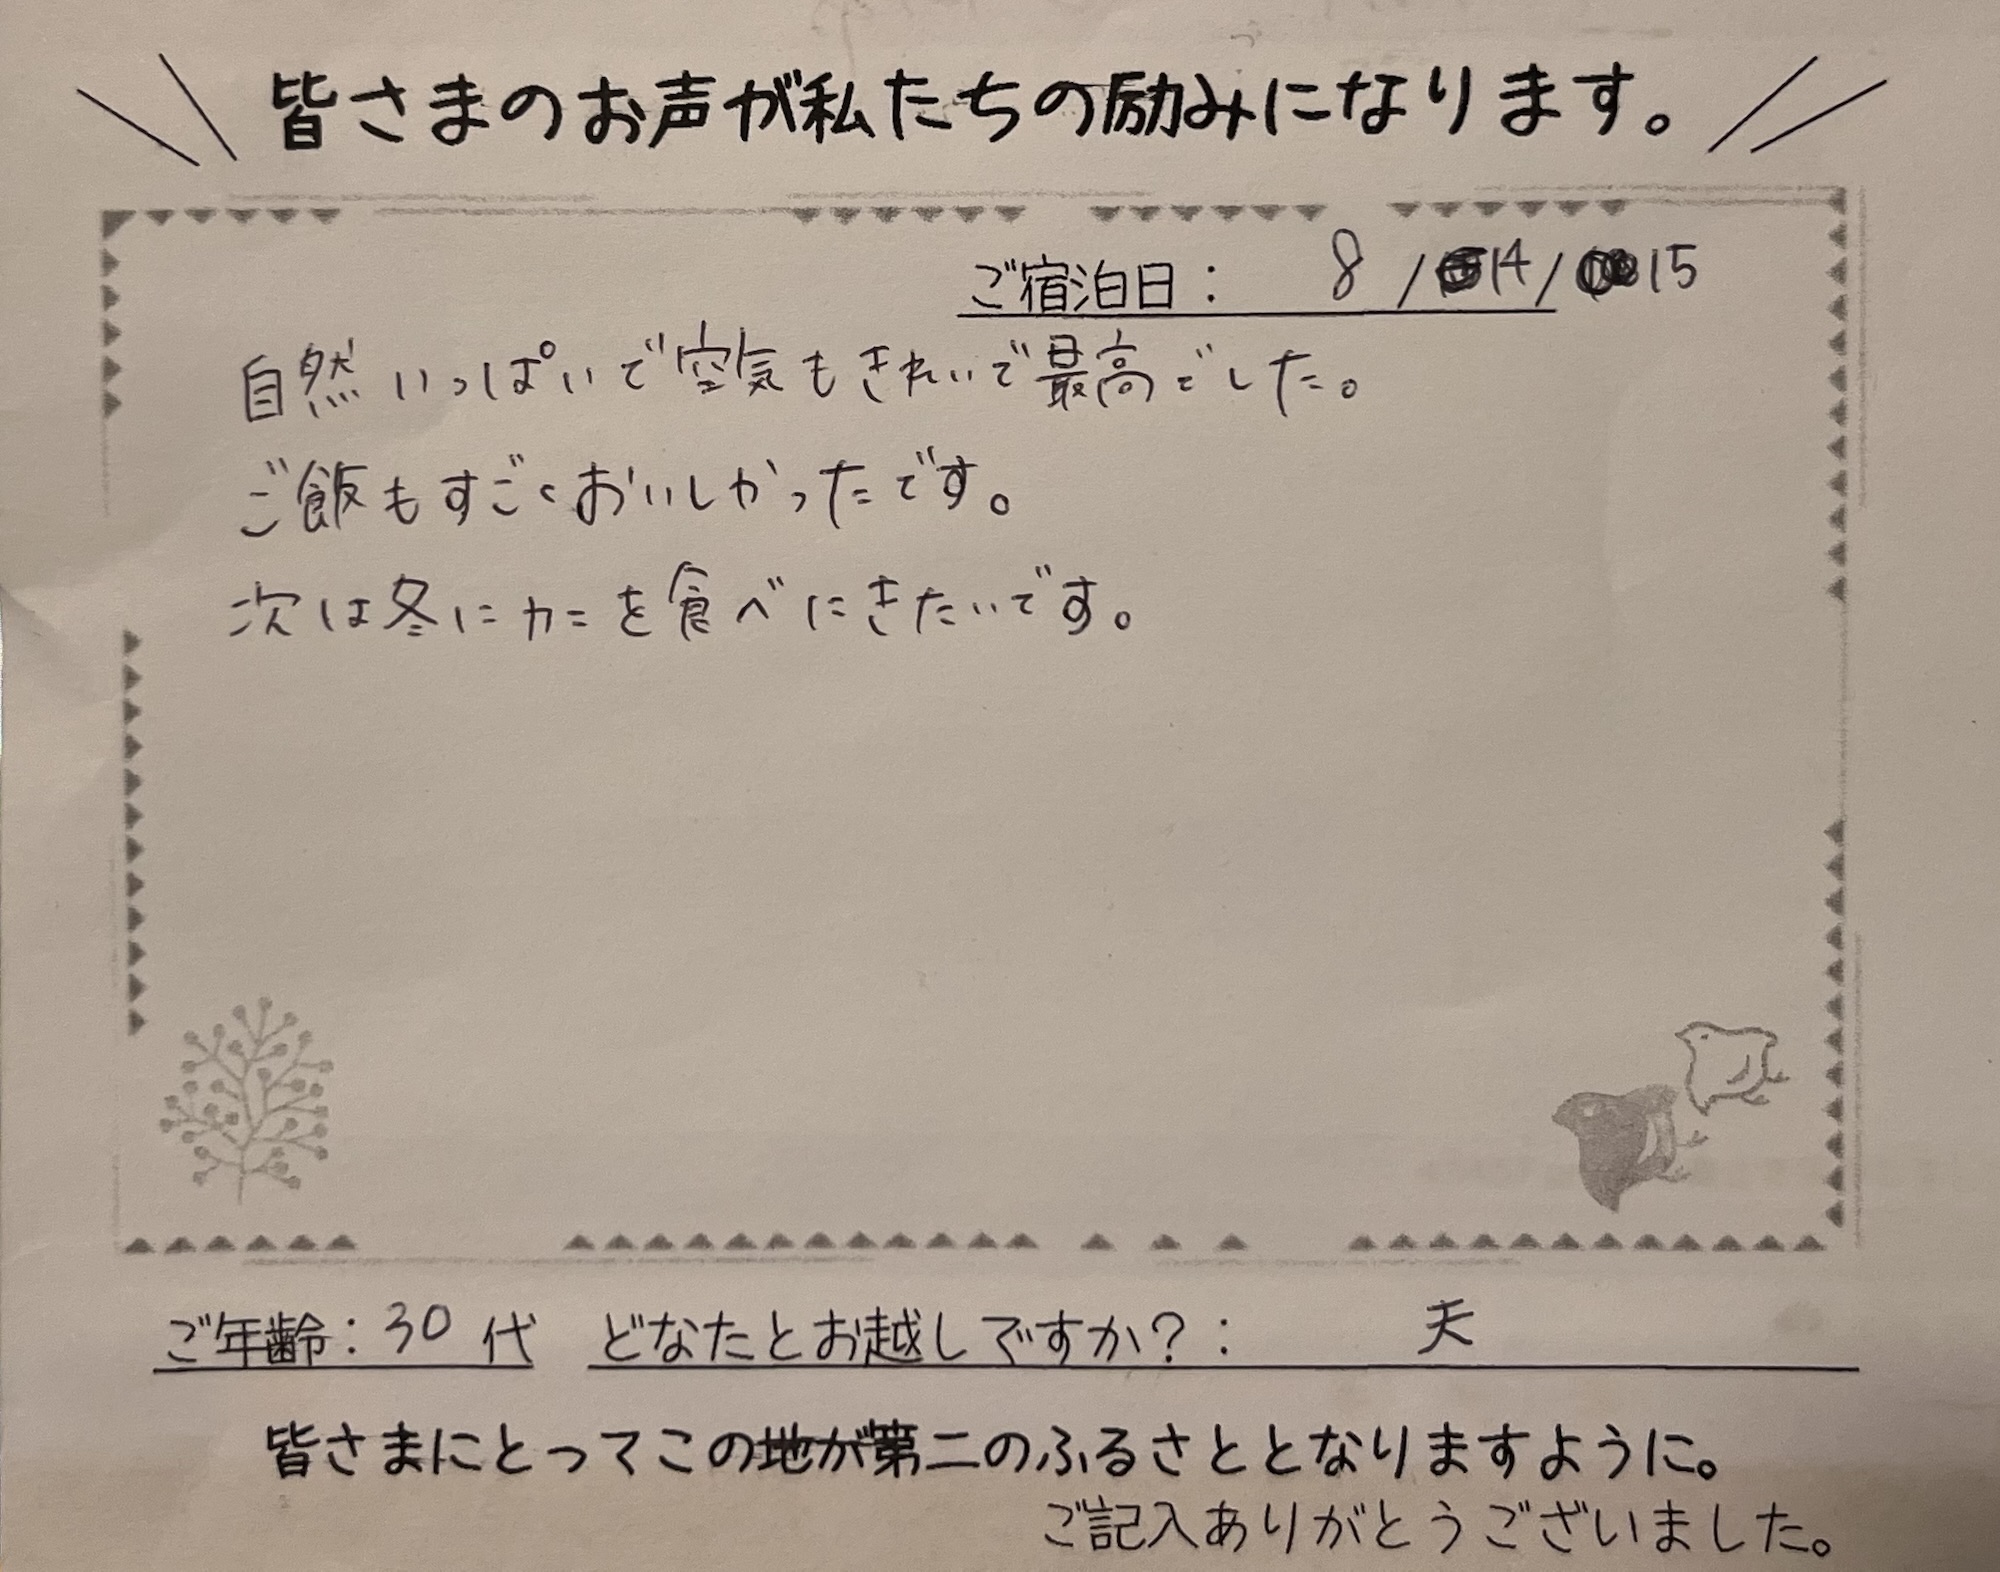 皆さまのお声が私たちの励みになります。
ご宿泊日： 8 / 14 / 15
自然いっぱいで空気もきれいで最高でした。
ご飯もすごくおいしかったです。
次は冬にカニを食べにきたいです。
ご年齢：30代 どなたとお越しですか？： 夫
皆さまにとってこの地が第二のふるさととなりますように。
ご記入ありがとうございました。